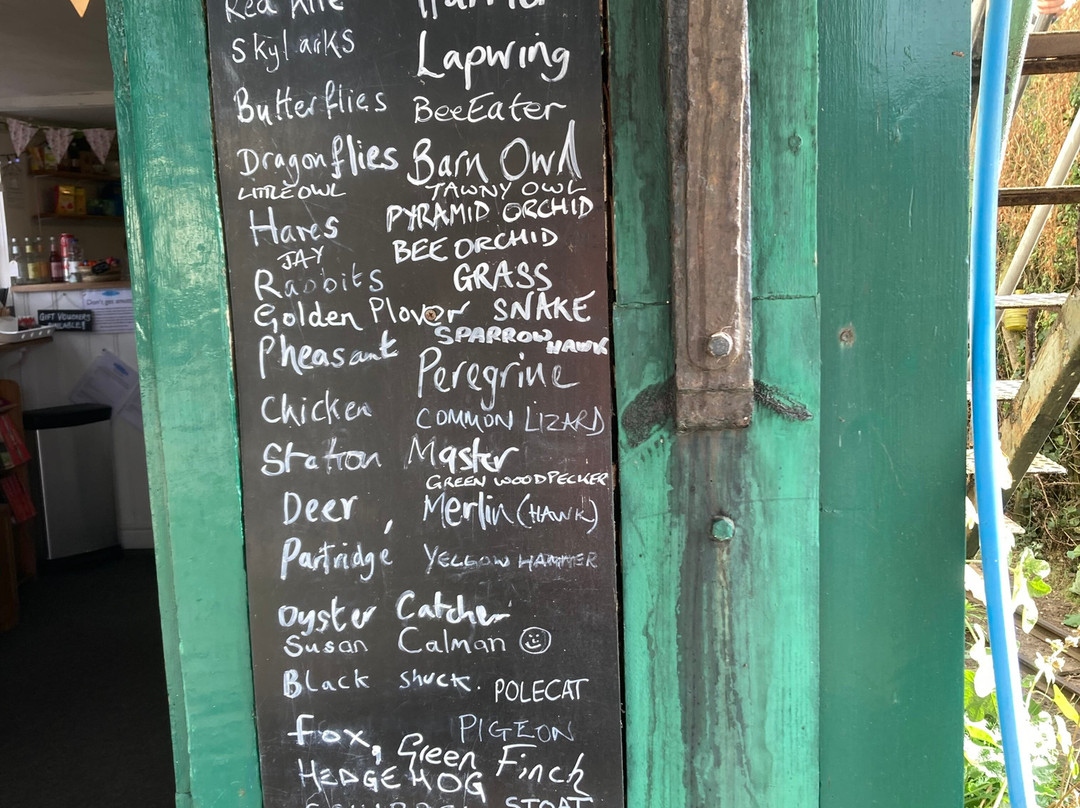 Red Kite Harrier
Skylarks Lapwing
Butterflies BeeEater
Dragonflies Barn Owl
LITTLE OWL TAWNY OWL
Hares PYRAMID ORCHID
JAY BEE ORCHID
Rabbits GRASS
Golden Plover SNAKE
Pheasant SPARROW HAWK
Peregrine
Chicken COMMON LIZARD
Station Master
GREEN WOODPECKER
Deer, Merlin (HAWK)
Partridge YELLOW HAMMER
Oyster Catcher
Susan Calman
Black shuck. POLECAT
Fox, PIGEON
Green Finch
HEDGEHOG
SQUIRREL STOAT
GIFT VOUCHERS
AVAILABLE!